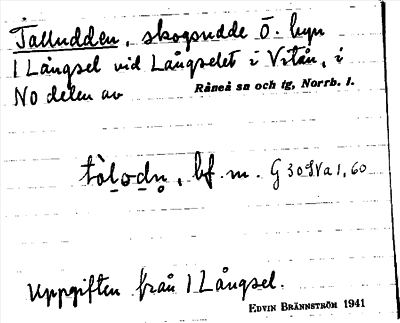 Talludden, skogsudde Ö. byn
I Långsel vid Långselet i Vitån, i
NO delen av Råneå sn och tg, Norrb. l.
tòlodn, bf. m. G 30 IVa 1, 60
Uppgiften från I Långsel.
EDVIN BRÄNNSTRÖM 1941